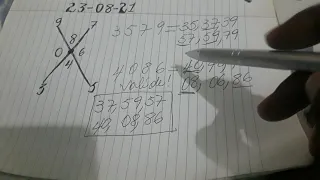 23-08-21
9 7
8
0 6
4
5 5
3579=35,37,39
57,59,79
4086=
08,06,86
Valide!
37,59,57
40,08,86